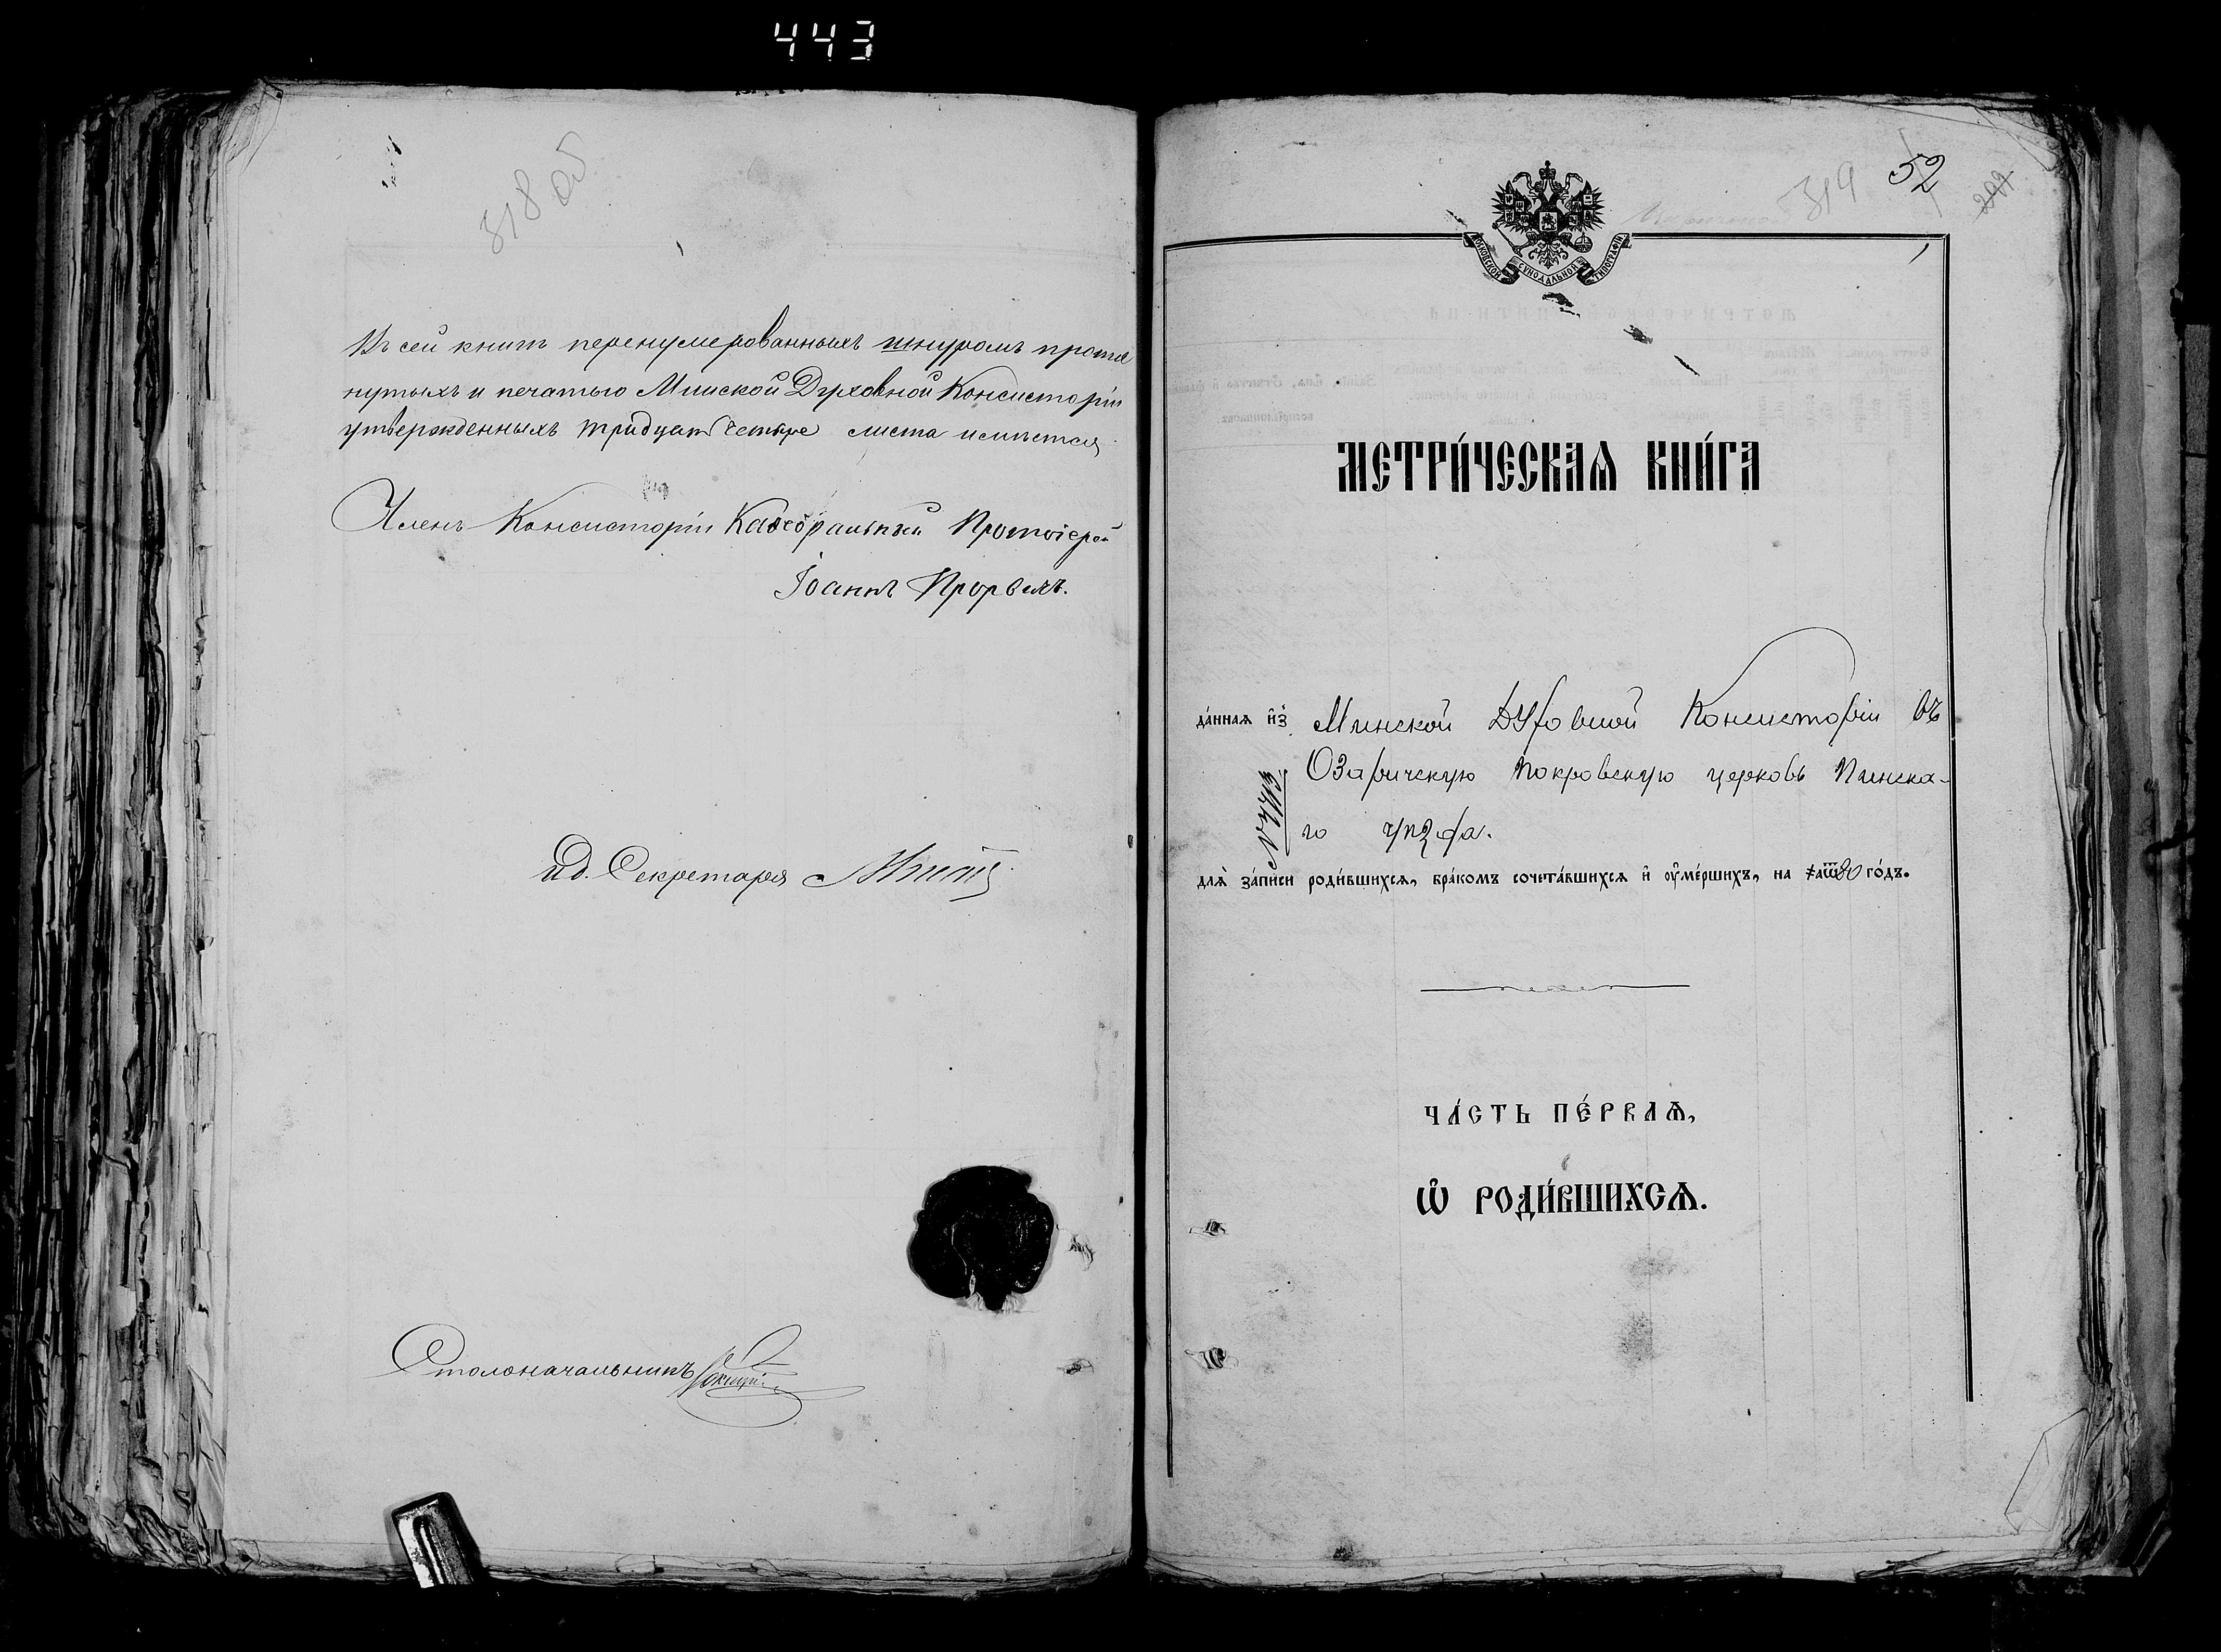 443
318 об
Въ сей книгѣ перенумерованныхъ шнуромъ протя
нутыхъ и печатью Минской Духовной Консисторіи
утвержденныхъ тридцать четыре листа имѣется
Членъ Консисторіи Каѳедральный Протоіерей
Іоаннъ
ид. Секретаря
Столоначальникъ
319
52
МОСКОВСКОЙ СѴНОДАЛЬНОЙ ТИПОГРАФІИ
МЕТРИ́ЧЕСКАѦ КНИ́ГА
да́ннаѧ и҆з̾ Минской Духовной Консисторіи въ
Озаричскую Покровскую церковь Пинска-
го уѣзда.
длѧ̀ за́писи роди́вшихсѧ, бра́комъ сочета́вшихсѧ и҆ ᲂу҆ме́ршихъ, на ҂аѿ80 го́дъ.
ЧА́СТЬ ПЕ́РВАѦ,
Ѡ҆ РОДИ́ВШИХСѦ.